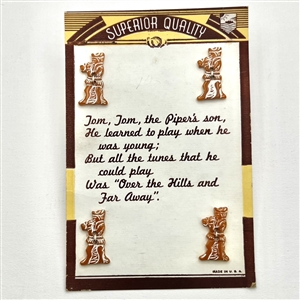 SUPERIOR QUALITY
Tom, Tom, the Piper's son,
He learned to play when he
was young;
But all the tunes that he
could play
Was "Over the Hills and
Far Away".
MADE IN U.S.A.